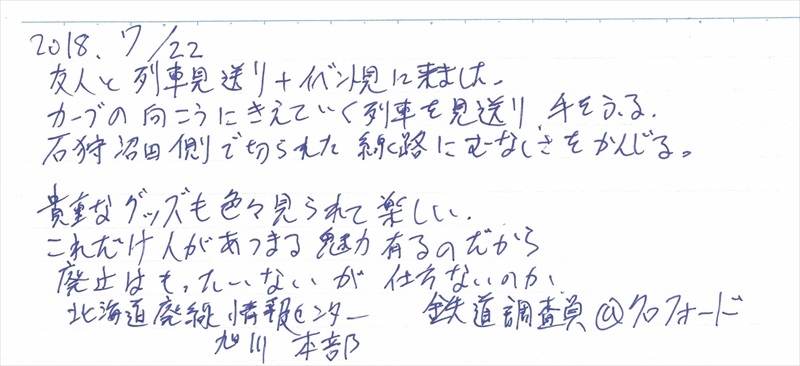 2018. 7/22
友人と列車見送り+イベント見に来ました.
カーブの向こうにきえていく列車を見送り、手をふる.
石狩沼田側で切られた線路にむなしさをかんじる。
貴重なグッズも色々見られて楽しい.
これだけ人があつまる魅力有るのだから
廃止はもったいないが仕方ないのか、
北海道廃線情報センター 鉄道調査員@クロフォード
旭川 本部